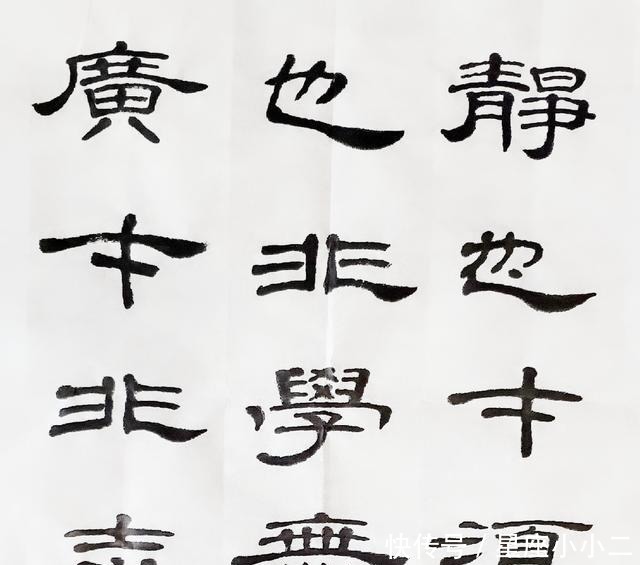 靜也才須
也非學無
廣才非志
快传号 / 星座小小二